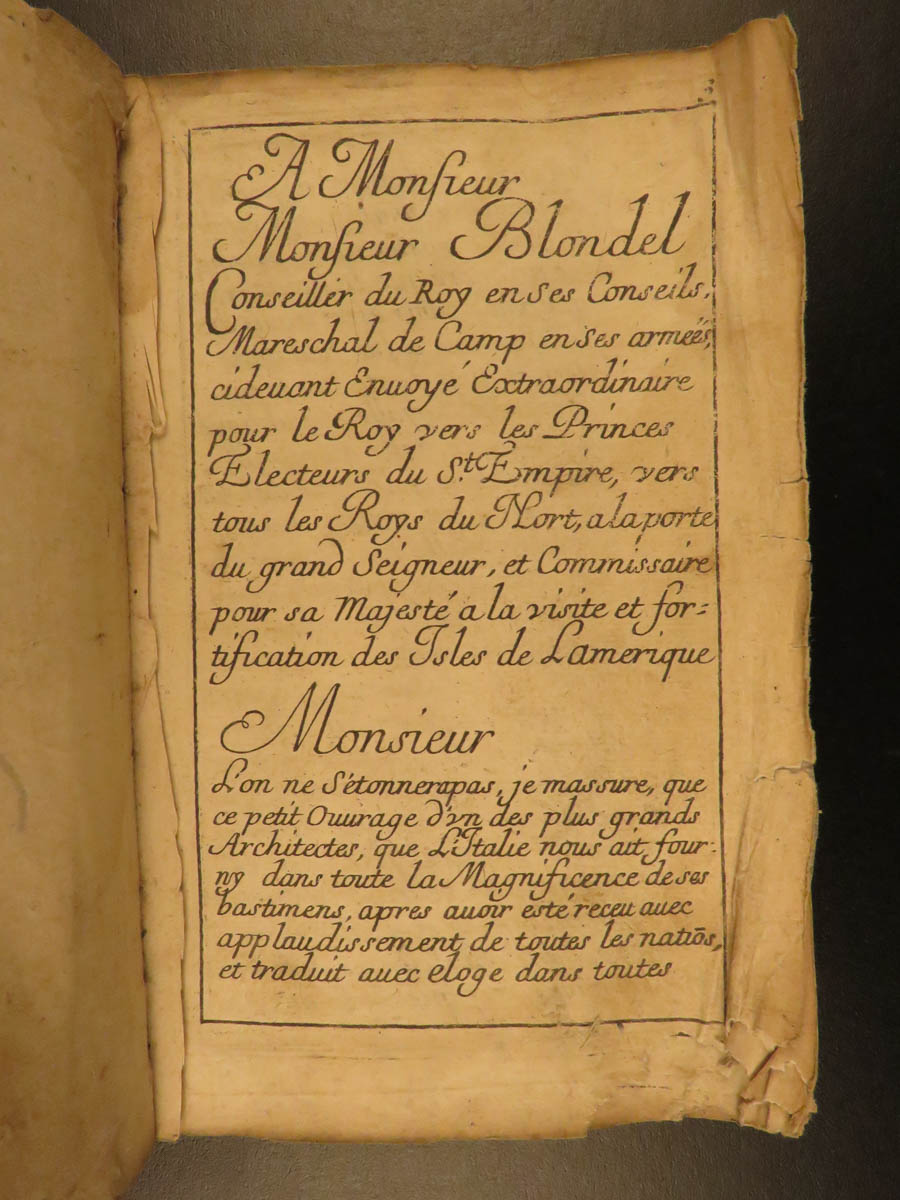 A Monsieur
Monsieur Blondel
Conseiller du Roy en ses Conseils,
Mareschal de Camp en ses armeés,
cideuant Enuoyé Extraordinaire
pour le Roy vers les Princes
Electeurs du St. Empire, vers
tous les Roys du Nort, a la porte
du grand Seigneur, et Commissaire
pour sa Majesté a la visite et for=
tification des Isles de Lamerique
Monsieur
L'on ne s'étonnera pas, je massure, que
ce petit Ouurage d'vn des plus grands
Architectes, que L'Italie nous ait four-
ny dans toute la Magnificence de ses
bastimens, apres auoir esté receu auec
applaudissement de toutes les natiōs,
et traduit auec eloge dans toutes